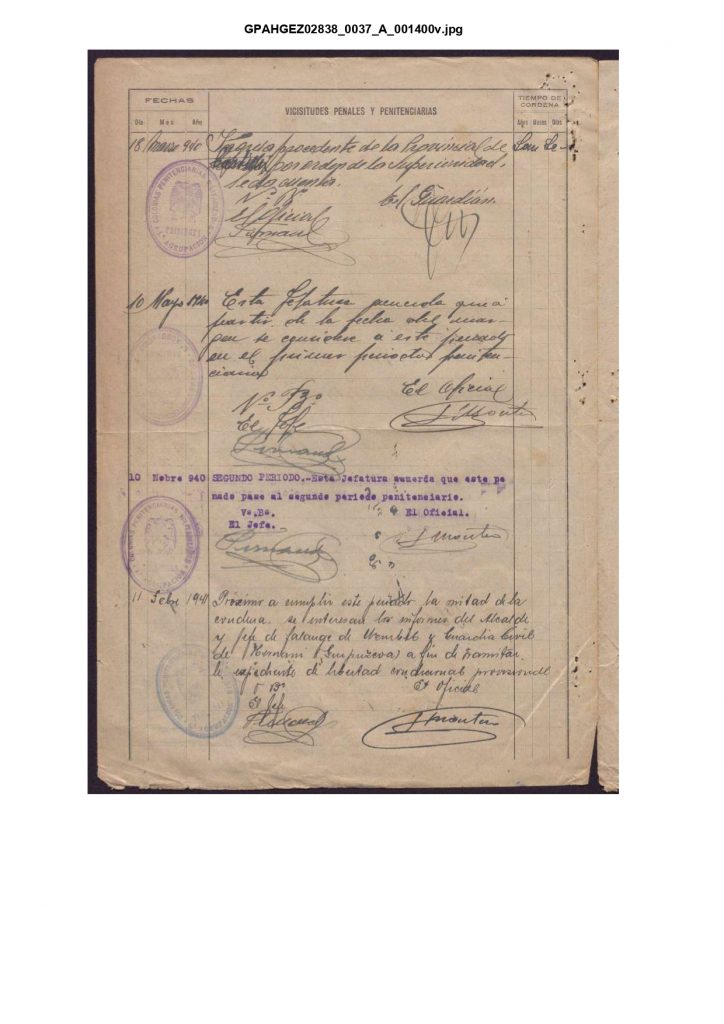 GPAHGEZ02838_0037_A_001400v.jpg
FECHAS
VICISITUDES PENALES Y PENITENCIARIAS
TIEMPO DE
CONDENA
Día Mes Año
Años Meses Días
18 Marzo 940 Ingresa procedente de la Provincial de San Se-
por orden de la Superioridad.
El Guardián
El Oficial
10 Mayo 1940 Esta Jefatura acuerda que a
partir de la fecha del mar-
gen se considere a este penado
en el primer periodo peniten-
ciario
Vº Bº
El Oficial
El Jefe
10 Nobre 940 SEGUNDO PERIODO.-Esta Jefatura acuerda que este pe
nado pase al segundo periodo penitenciario.
Vo.Bo. El Oficial.
El Jefe.
11 1941 Próximo a cumplir este penado la mitad de la
condena se interesan los informes del Alcalde
y Jefe de falange de y Guardia Civil
de Hernani (Guipuzcoa) a fin de tramitar
le expediente de libertad condicional provisional
Vº Bº El Oficial
El Jefe